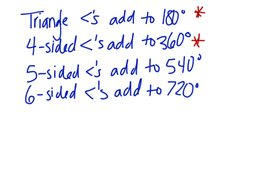 Triangle <'s add to 180° *
4-sided <'s add to 360° *
5-sided <'s add to 540°
6-sided <'s add to 720°